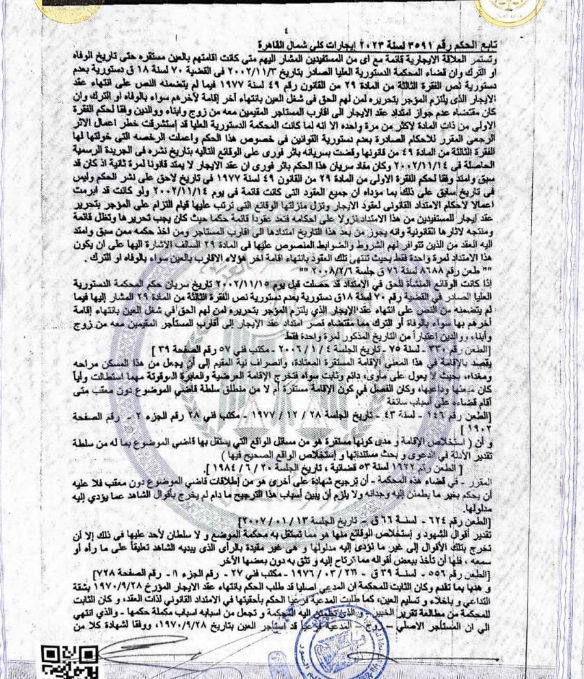 ٤
تابع الحكم رقم ٣٥٩١ لسنة ٢٠٢٣ إيجارات كلي شمال القاهرة
وتستمر العلاقة الايجارية قائمة مع اى من المستفيدين المشار اليهم متى كانت اقامتهم بالعين مستقره حتى تاريخ الوفاه
او الترك وان قضاء المحكمة الدستورية العليا الصادر بتاريخ ٢٠٠٢/١١/٣ فى القضية ٧٠ لسنة ١٨ ق دستورية بعدم
دستورية نص الفقرة الثالثة من المادة ٢٩ من القانون رقم ٤٩ لسنة ١٩٧٧ فيما لم يتضمنه النص على انتهاء عقد
الايجار الذى يلتزم المؤجر بتحريره لمن لهم الحق فى شغل العين بانتهاء أخر إقامة لأخرهم سواء بالوفاه أو الترك وان
كان مقتضاه عدم جواز امتداد عقد الايجار الى اقارب المستاجر المقيمين معه من زوج وابناء ووالدين وفقا لحكم الفقرة
الاولى من ذات المادة لاكثر من مرة واحده الا انه لما كانت المحكمة الدستورية العليا قد استشرفت خطر اعمال الاثر
الرجعى المقرر للاحكام الصادرة بعدم دستورية القوانين فى خصوص هذا الحكم واعملت الرخصه التى خولتها لها
الفقرة الثالثة من المادة ٤٩ من قانونها وقضت بسريانه باثر فورى على الوقائع التاليه بتاريخ نشره فى الجريدة الرسمية
الحاصلة فى ٢٠٠٢/١١/١٤ وكان مفاد سريان هذا الحكم باثر فورى ان عقد الايجار لا يمتد قانونا لمرة ثانية اذ كان قد
سبق وامتد وفقا لحكم الفقرة الأولى من المادة ٢٩ من القانون ٤٩ لسنة ١٩٧٧ فى تاريخ لاحق على نشر الحكم وليس
فى تاريخ سابق على ذلك بما مؤداه ان جميع العقود التى كانت قائمة فى يوم ٢٠٠٢/١١/١٤ ولو كانت قد ابرمت
اعمالا لاحكام الامتداد القانونى لعقود الايجار وتنزل منزلتها الوقائع التى ترتب عليها قيام التزام على المؤجر بتحرير
عقد ايجار للمستفيدين من هذا الامتداد نزولا على احكامه فتعد عقودا قائمة حكما حيث كان يجب تحريرها وتظل قائمة
ومنتجه لاثارها القانونية وانه يجوز من بعد هذا التاريخ امتدادها الى اقارب المستاجر ومن اخذ حكمه ممن سبق وامتد
اليه العقد من الذين تتوافر لهم الشروط والضوابط المنصوص عليها فى المادة ٢٩ السالف الاشارة اليها على ان يكون
هذا الامتداد لمرة واحدة فقط بحيث تنتهى تلك العقود بانتهاء اقامة اخر هؤلاء الاقارب بالعين سواء بالوفاه او الترك .
"" طعن رقم ٨٦٨٨ لسنة ٧٦ ق جلسة ٢٠٠٨/٢/٦ ""
إذا كانت الوقائع المنشأة للحق في الامتداد قد حصلت قبل يوم ٢٠٠٢/١١/١٥ تاريخ سريان حكم المحكمة الدستورية
العليا الصادر في القضية رقم ٧٠ لسنة ١٨ق دستورية بعدم دستورية نص الفقرة الثالثة من المادة ٢٩ المشار إليها فيما
لم يتضمنه من النص على انتهاء عقد الإيجار الذي يلتزم المؤجر بتحريره لمن لهم الحق في شغل العين بانتهاء إقامة
آخرهم بها سواء بالوفاة أو الترك مما مقتضاه قصر امتداد عقد الإيجار إلى أقارب المستأجر المقيمين معه من زوج
وأبناء ووالدين إعتباراً من التاريخ المذكور لمرة واحدة فقط
[الطعن رقم ٣٣٠ - لسنة ٧٥ - تاريخ الجلسة ٤ / ١ / ٢٠٠٦ - مكتب فني ٥٧ رقم الصفحة ٣٩ ]
يقصد بالإقامة في هذا المعنى الإقامة المستقرة المعتادة، وانصراف نية المقيم إلى أن يجعل من هذا المسكن مراحه
ومغداه، بحيث لا يعول على مأوى دائم وثابت سواه فتخرج الإقامة العرضية والعابرة الموقوتة مهما استطالت وأياً
كان مبعثها ودواعيها، وكان الفصل في كون الإقامة مستقرة أم لا من منطلق سلطة قاضي الموضوع دون معقب متى
أقام قضاءه على أسباب سائغة
[الطعن رقم ١٤٦ - لسنة ٤٣ - تاريخ الجلسة ٢٨ / ١٢ / ١٩٧٧ - مكتب فني ٢٨ رقم الجزء ٢ - رقم الصفحة
١٩٠٢ ]
و أن ( استخلاص الإقامة و مدى كونها مستقرة هو من مسائل الواقع التي يستقل بها قاضي الموضوع بما له من سلطة
تقدير الأدلة في الدعوى و بحث مستنداتها و إستخلاص الواقع الصحيح فيها )
[ الطعن رقم ١٦٢٢ لسنة ٥٣ قضائية ، تاريخ الجلسة ٢٠ / ٦ / ١٩٨٤ ]
المقرر - في قضاء هذه المحكمة - أن ترجيح شهادة على أخرى هو من إطلاقات قاضي الموضوع دون معقب فلا عليه
أن يحكم بخير ما يطمئن إليه وجدانه ولا يلزم أن يبين أسباب هذا الترجيح ما دام لم يخرج بأقوال الشاهد عما يؤدي إليه
مدلولها.
[الطعن رقم ٦٢٤ - لسنة ٦٦ ق - تاريخ الجلسة ١٣ / ٠١ / ٢٠٠٧]
تقدير أقوال الشهود و إستخلاص الوقائع منها هو مما تستقل به محكمة الموضع و لا سلطان لأحد عليها في ذلك إلا أن
تخرج بتلك الأقوال إلى غير ما تؤدى إليه مدلولها و هى غير مقيدة بالرأى الذى يبديه الشاهد تعليقاً على ما رآه أو
سمعه ، فلها أن تأخذ ببعض أقواله مما ترتاح إليه و تثق به دون بعضها الآخر
[الطعن رقم ٥٥٦ - لسنة ٣٩ ق - تاريخ الجلسة ٢٣ / ٠٣ / ١٩٧٦ - مكتب فني ٢٧ - رقم الجزء ١ - رقم الصفحة ٧٢٨]
و هديا بما تقدم وكان الثابت للمحكمة ان المدعي اصليا قد طلب الحكم بانتهاء عقد الايجار المؤرخ ١٩٧٠/٩/٢٨ بشقة
التداعي و باخلاء و تسليم العين، كما طلبت المدعية فرعيا الحكم بأحقيتها في الامتداد القانوني لذات العقد، و كان الثابت
للمحكمة من مطالعة تقرير الخبير و الذي تطمئن اليه المحكمة و تجعل من اسبابه اسباب مكملة حكمها - والذي انتهي
الي ان المستأجر الاصلي - زوج المدعية فرعيا قد استأجر العين بتاريخ ١٩٧٠/٩/٢٨، ووفقا لشهادة كلا من